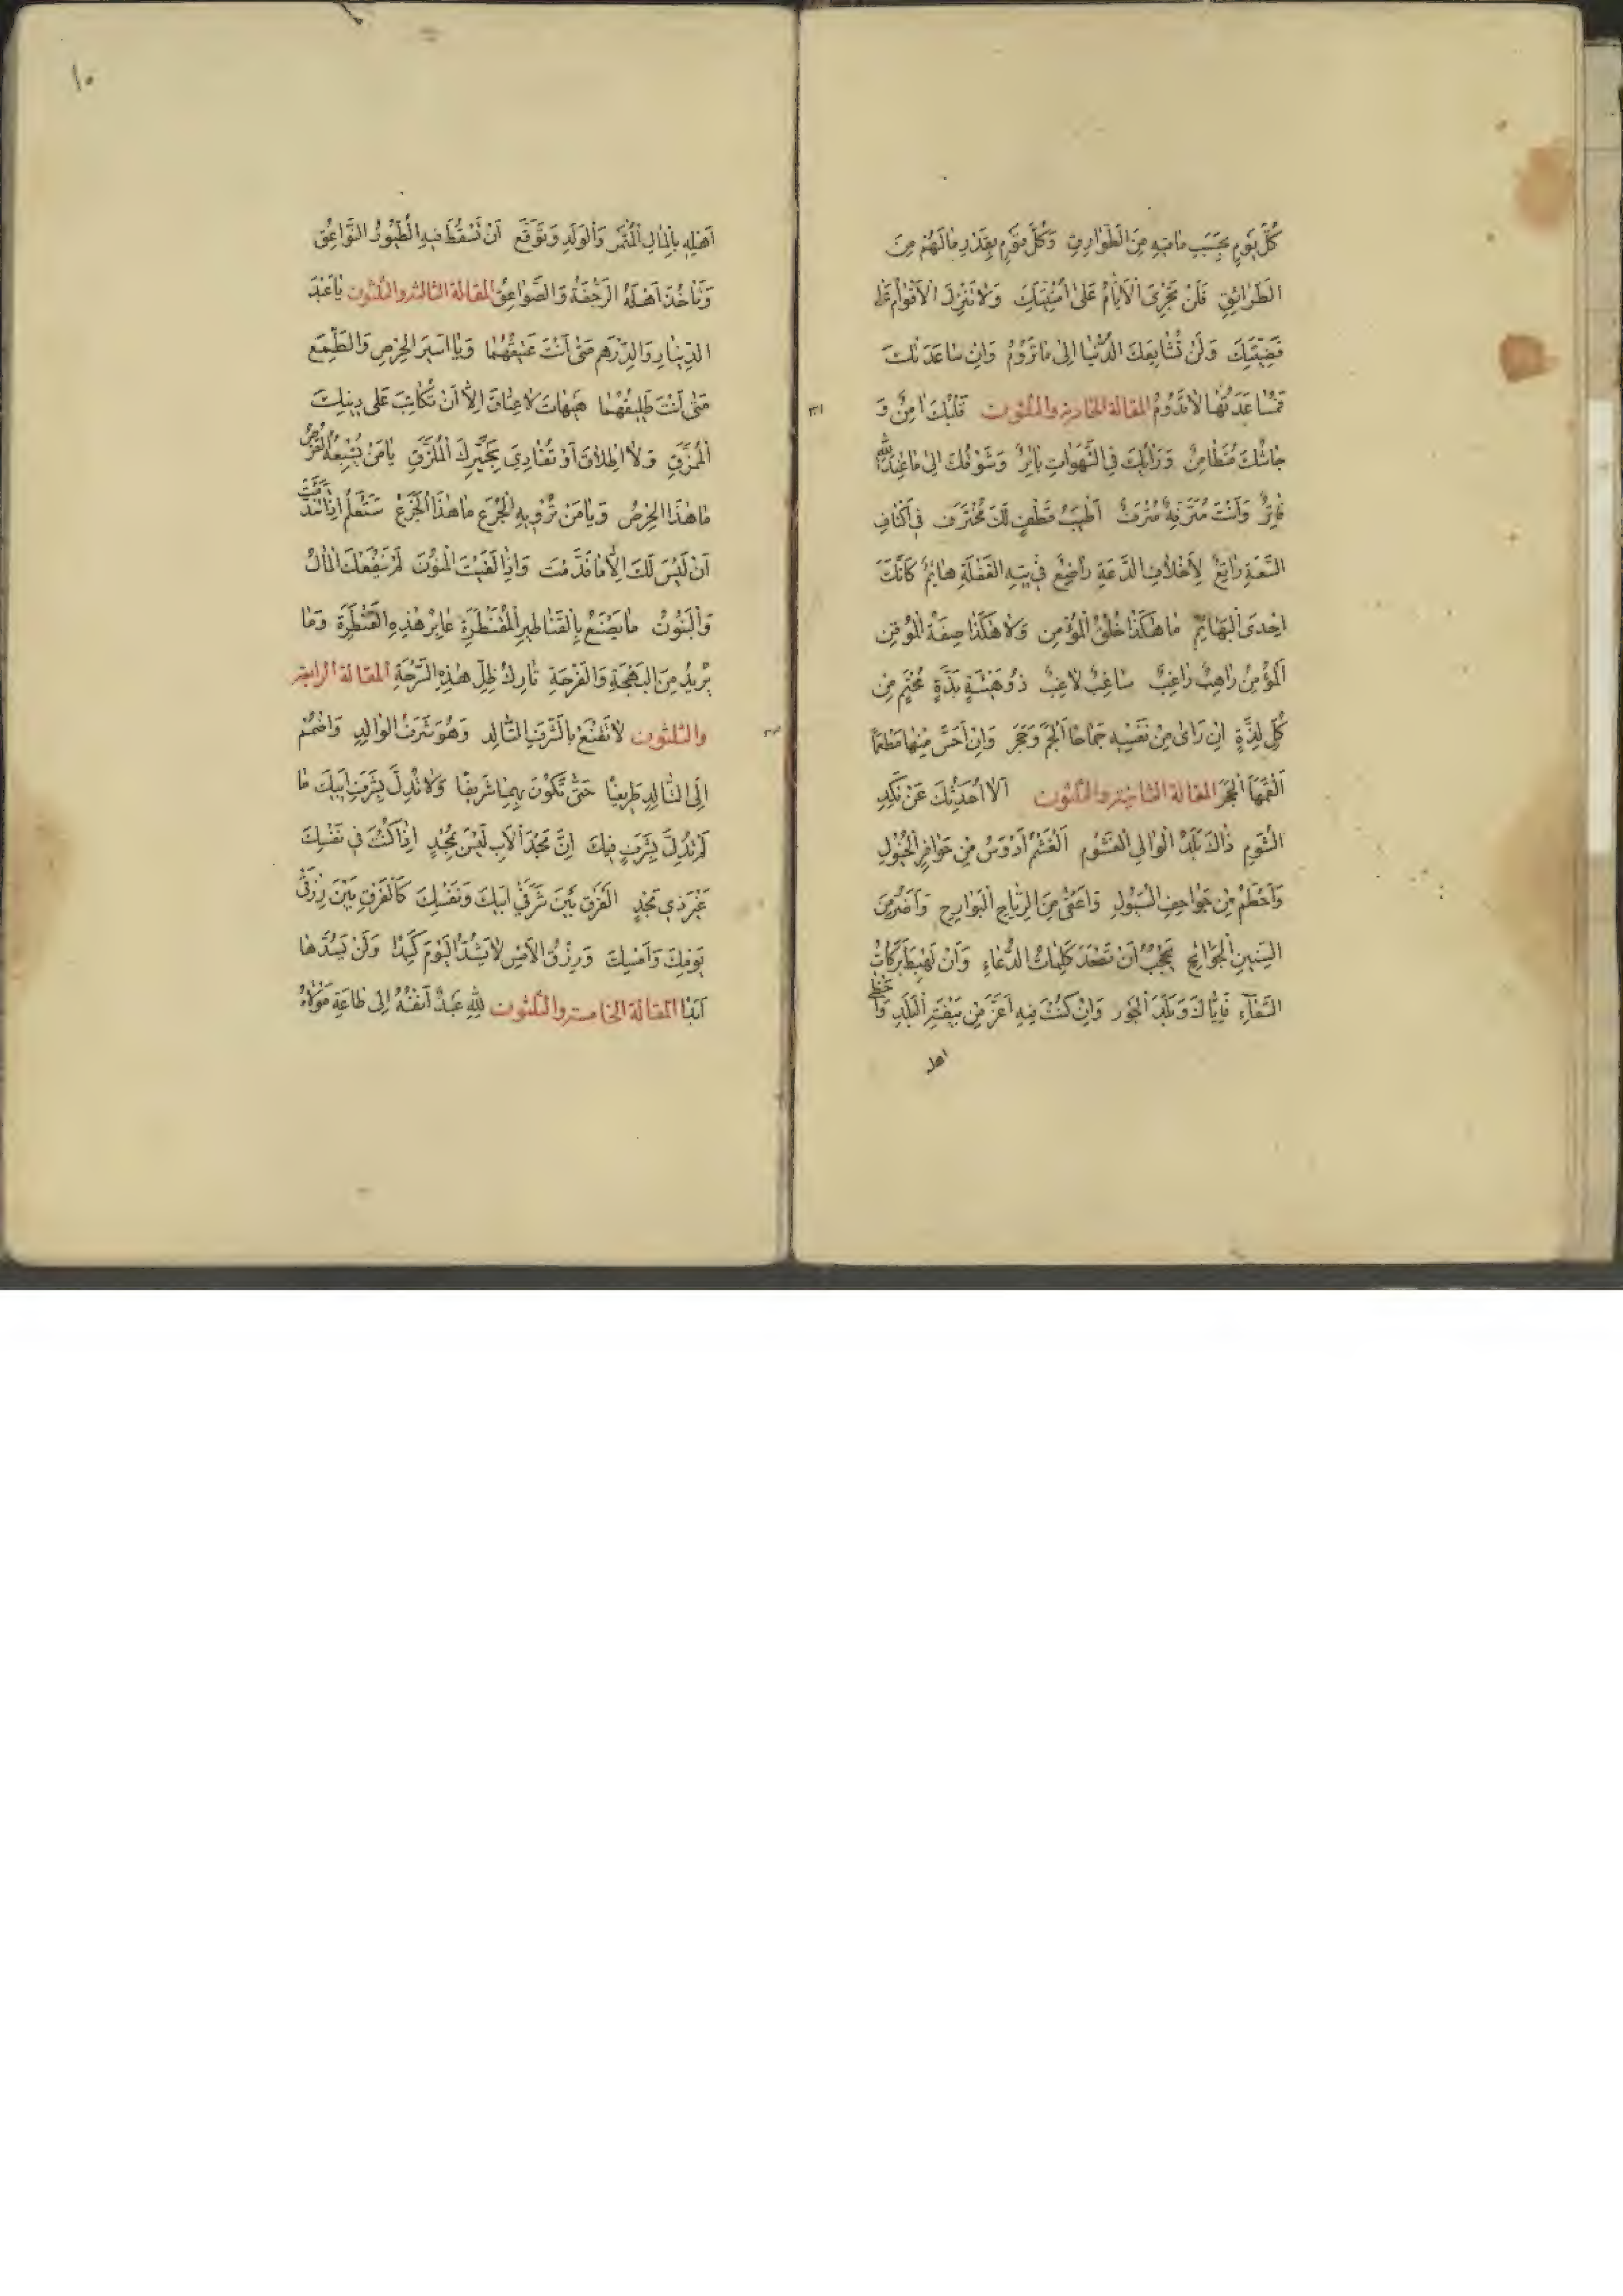 كُلَّ يَوْمٍ بِحَسَبِ مَا فِيهِ مِنَ الطَّوَارِقِ وَكُلَّ قَوْمٍ بِقَدْرِ مَا لَهُمْ مِنَ
الطَّرَائِقِ فَلَنْ تَجْرِيَ الْأَيَّامُ عَلَى أُمْنِيَّتِكَ وَلَا تَنْزِلَ الْأَقْوَامُ عَلَى
قَضِيَّتِكَ وَلَنْ تُشَايِعَكَ الدُّنْيَا إِلَى مَا تَرُومُ وَإِنْ سَاعَدَتْكَ
فَمُسَاعَدَتُهَا لَا تَدُومُ المقالة الحادية والثلثون قَلْبُكَ آمِنٌ وَ
جَاشُكَ مُتَطَامِنٌ وَرَأْيُكَ فِي الشَّهَوَاتِ بَاتِرٌ وَشَوْقُكَ إِلَى مَا عِنْدَ اللّٰهِ
فَاتِرٌ وَأَنْتَ مُتَرَفِّهٌ مُتْرَفٌ أَطْيَبُ قِطْفٍ لَكَ مُخْتَرَف فِي أَكْنَافِ
السَّعَةِ رَاتِعٌ لِأَخْلَافِ الدَّعَةِ رَاضِعٌ فِي تِيهِ الْغَفْلَةِ هَائِمٌ كَأَنَّكَ
إِحْدَى الْبَهَائِمِ مَا هَكَذَا خُلُقُ الْمُؤْمِنِ وَلَا هَكَذَا صِفَةُ الْمُوقِنِ
اَلْمُؤْمِنُ رَاهِبٌ رَاغِبٌ سَاغِبٌ لَاغِبٌ ذُو هَيْئَةٍ بَذَّةٍ مُحْتَمٍ مِنْ
كُلِّ لَذَّةٍ إِنْ رَأَى مِنْ نَفْسِهِ جِمَاحًا أَلْجَمَ وَحَجَرَ وَإِنْ أَحَسَّ مِنْهَا مَطْعَمًا
أَلْقَمَهَا الْحَجَرَ المقالة الثانية والثلثون أَلَا أُحَدِّثُكَ عَنْ بَلَدِ
الشُّومِ ذَاكَ بَلَدُ الْوَالِي الْغَشُومِ اَلْغَشْمُ أَدْوَسُ مِنْ حَوَافِرِ الْخُيُولِ
وَأَحْطَمُ مِنْ جَوَاحِفِ السُّيُولِ وَأَعْفَى مِنَ الرِّيَاحِ الْبَوَارِحِ وَأَضَرُّ مِنَ
السِّنِينِ الْجَوَائِحِ يَحْجُبُ أَنْ تَصْعَدَ كَلِمَاتُ الدُّعَاءِ وَأَنْ تَهْبِطَ بَرَكَاتُ
السَّمَاءِ فَإِيَّاكَ وَبَلَدَ الْجَوْرِ وَإِنْ كُنْتَ فِيهِ أَعَزَّ مِنْ بَيْضَةِ الْبَلَدِ وَأَحْظَى
اهله
١٠
أَهْلِهِ بِالْمَالِ الْمُثَمَّرِ وَالْوَلَدِ وَتَوَقَّعْ أَنْ تَسْقُطَ فِيهِ الطُّيُورُ النَّوَاعِقُ
وَتَأْخُذَ أَهْلَهُ الرَّجْفَةُ وَالصَّوَاعِقُ المقالة الثالثة والثلثون يَا عَبْدَ
الدِّينَارِ وَالدِّرْهَمِ مَتَى أَنْتَ عَتِيقُهُمَا وَيَا أَسِيرَ الْحِرْصِ وَالطَّمَعِ
مَتَى أَنْتَ طَلِيقُهُمَا هَيْهَاتَ لَا عِتَاقَ إِلَّا أَنْ تُكَاتِبَ عَلَى دِينِكَ
الْمُمَزَّقِ وَلَا إِطْلَاقَ أَوْ تُفَادِيَ بِخَيْرِكَ الْمُلَزَّقِ يَا مَنْ يُشْبِعُهُ الْقُرْصُ
مَا هَذَا الْحِرْصُ وَيَا مَنْ تُرْوِيهِ الْجُرَعُ مَا هَذَا الْجَزَعُ سَتَعْلَمُ إِذَا تَنَدَّمْتَ
أَنْ لَيْسَ لَكَ إِلَّا مَا قَدَّمْتَ وَإِذَا لَقِيتَ الْمَنُونَ لَمْ يَنْفَعْكَ الْمَالُ
وَالْبَنُونَ مَا يَصْنَعُ بِالْقَنَاطِيرِ الْمُقَنْطَرَةِ عَابِرُ هَذِهِ الْقَنْطَرَةِ وَمَا
يُرِيدُ مِنَ الْبَهْجَةِ وَالْفَرْحَةِ تَارِكُ ظِلِّ هَذِهِ السَّرْحَةِ المقالة الرابعة
والثلثون لَا تَقْنَعْ بِالشَّرَفِ التَّالِدِ وَهُوَ شَرَفُ الْوَالِدِ وَاضْمُمْ
إِلَى التَّالِدِ طَرِيفًا حَتَّى تَكُونَ بِهِمَا شَرِيفًا وَلَا تُدِلَّ بِشَرَفِ أَبِيكَ مَا
لَمْ تُدِلَّ بِشَرَفٍ فِيكَ إِنَّ مَجْدَ الْأَبِ لَيْسَ بِمُجْدٍ إِذَا كُنْتَ فِي نَفْسِكَ
غَيْرَ ذِي مَجْدٍ الْفَرْقُ بَيْنَ شَرَفَيْ أَبِيكَ وَنَفْسِكَ كَالْفَرْقِ بَيْنَ رِزْقَيْ
يَوْمِكَ وَأَمْسِكَ وَرِزْقُ الْأَمْسِ لَا يَسُدُّ الْيَوْمَ كَبِدًا وَلَنْ يَسُدَّهَا
أَبَدًا المقالة الخامسة والثلثون لِلّٰهِ عَبْدٌ آبِقَتُهُ إِلَى طَاعَةِ مَوْلَاهُ